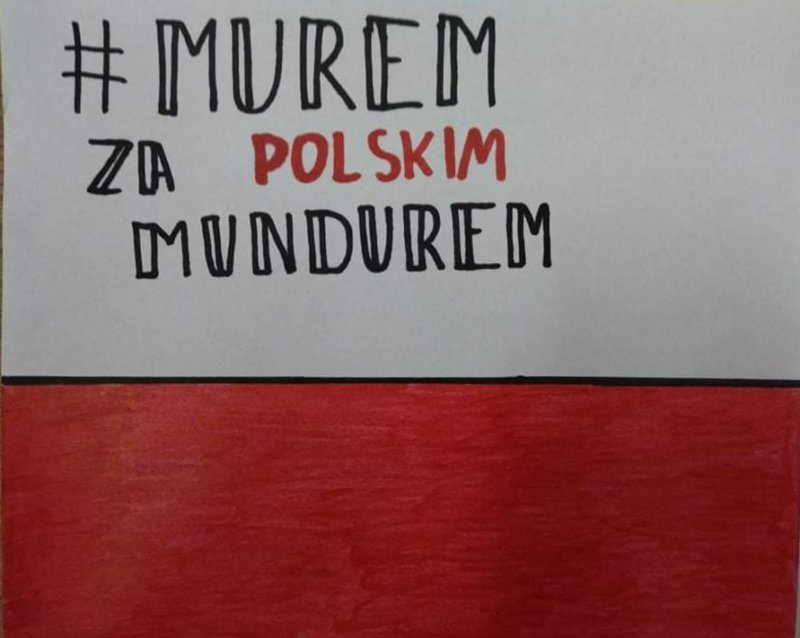 #MUREM
ZA POLSKIM
MUNDUREM